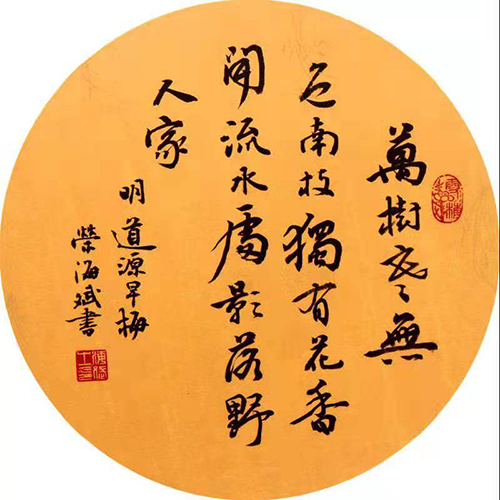 萬樹寒無
色南枝獨有花香
聞流水處影落野
人家
明道源早梅
榮海斌書